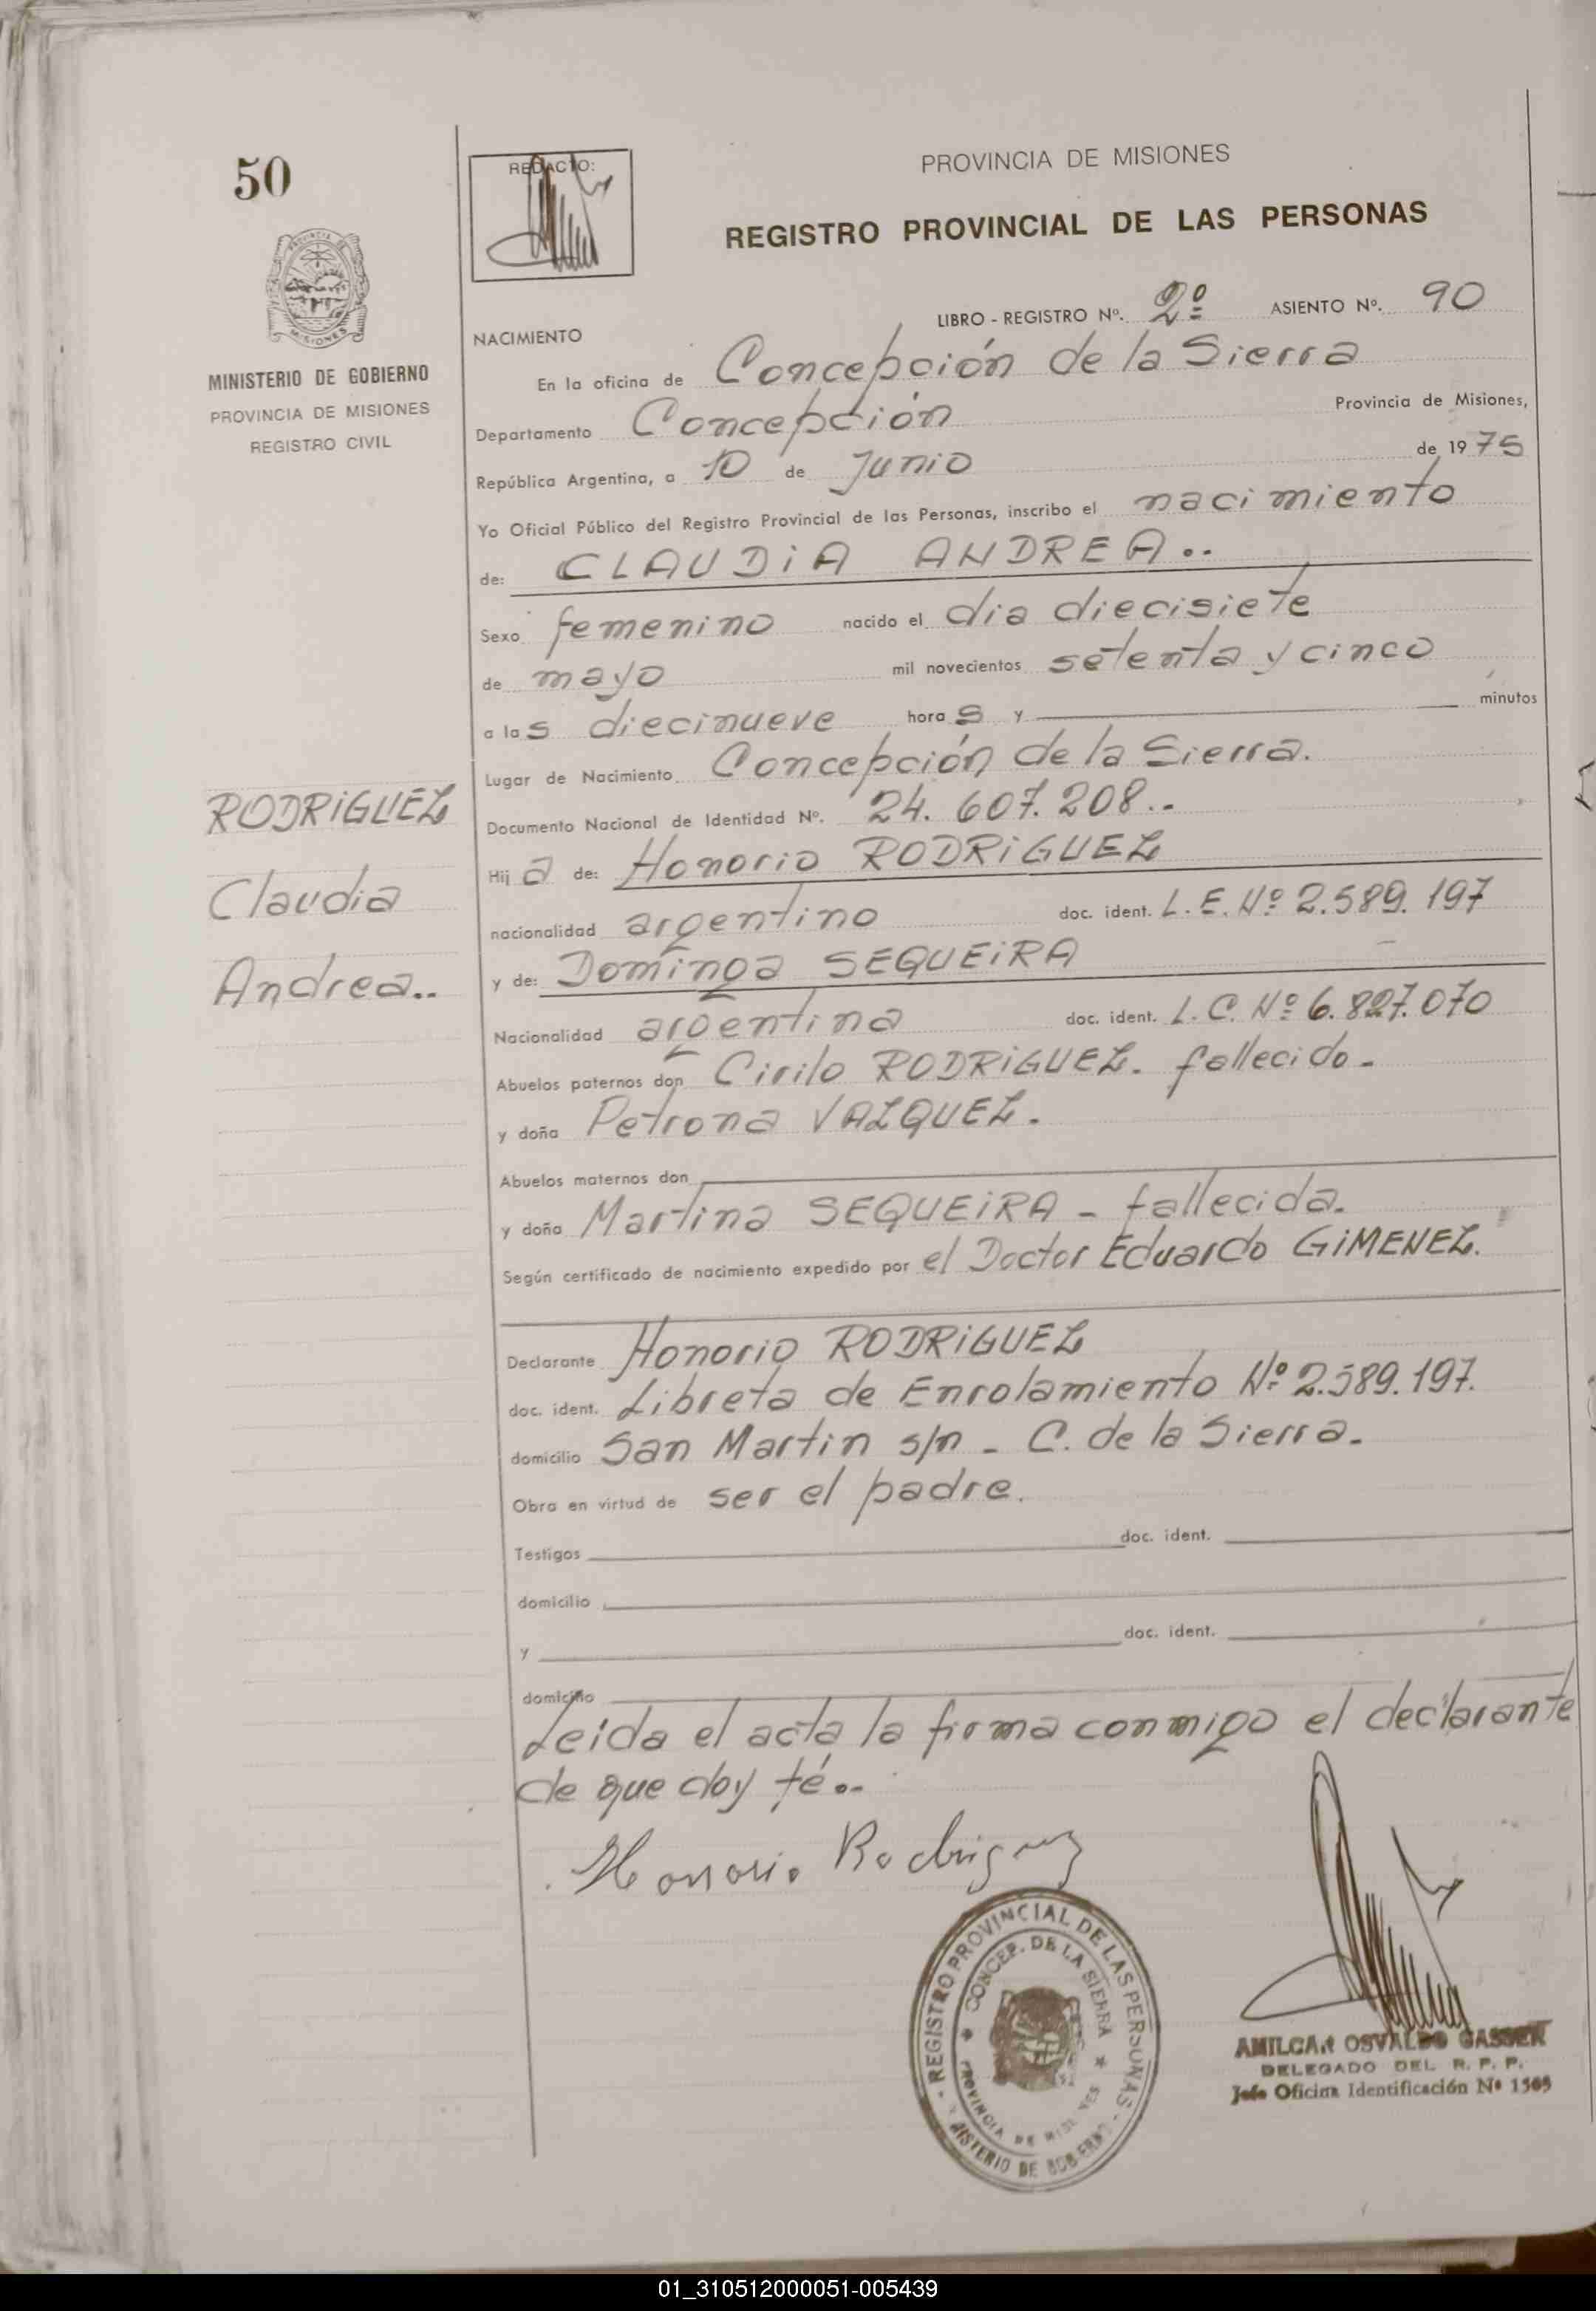 50
REDACTO:
PROVINCIA DE MISIONES
REGISTRO PROVINCIAL DE LAS PERSONAS
LIBRO - REGISTRO Nº. 2º ASIENTO Nº. 90
PROVINCIA DE MISIONES
MINISTERIO DE GOBIERNO
PROVINCIA DE MISIONES
REGISTRO CIVIL
NACIMIENTO
En la oficina de Concepción de la Sierra
Departamento Concepción Provincia de Misiones,
República Argentina, a 10 de Junio de 19 75
Yo Oficial Público del Registro Provincial de las Personas, inscribo el nacimiento
de: CLAUDiA ANDREA..
Sexo femenino nacido el dia diecisiete
de mayo mil novecientos setenta y cinco
a las diecinueve horas y minutos
Lugar de Nacimiento Concepción de la Sierra.
Documento Nacional de Identidad Nº. 24.607.208..
RODRiGUEZ
Claudia
Andrea..
Hija de: Honorio RODRiGUEZ
nacionalidad argentino doc. ident. L.E. Nº 2.589.197
y de: Dominga SEQUEiRA
Nacionalidad argentina doc. ident. L.C. Nº 6.827.070
Abuelos paternos don Cirilo RODRiGUEZ. fallecido.
y doña Petrona VAZQUEZ.
Abuelos maternos don
y doña Martina SEQUEiRA - fallecida.
Según certificado de nacimiento expedido por el Doctor Eduardo GiMENEZ.
Declarante Honorio RODRiGUEZ
doc. ident. Libreta de Enrolamiento Nº 2.589.197.
domicilio San Martin s/n - C. de la Sierra.
Obra en virtud de ser el padre.
Testigos doc. ident.
domicilio
y doc. ident.
domicilio
Leida el acta la firma conmigo el declarante
de que doy fé..
Honorio Rodriguez
REGISTRO PROVINCIAL DE LAS PERSONAS
CONCEP. DE LA SIERRA
PROVINCIA DE MISIONES
MINISTERIO DE GOBIERNO
AMILCAR OSVALDO GASSER
DELEGADO DEL R. P. P.
Jefe Oficina Identificación Nº 1505
01_310512000051-005439